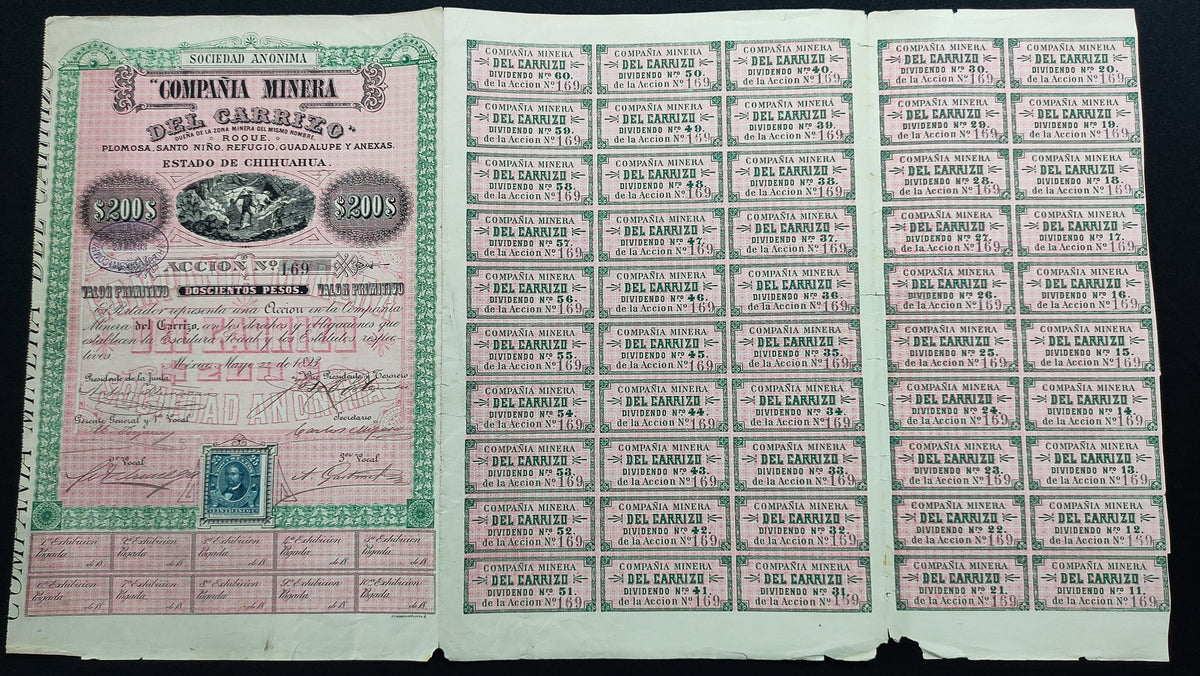 COMPAÑIA MINERA DEL CARRIZO
SOCIEDAD ANONIMA
COMPAÑIA MINERA
"DEL CARRIZO"
DUEÑA DE LA ZONA MINERA DEL MISMO NOMBRE
ROQUE,
PLOMOSA, SANTO NIÑO, REFUGIO, GUADALUPE Y ANEXAS.
ESTADO DE CHIHUAHUA.
$200$ $200$
ACCION Nº 169
VALOR PRIMITIVO DOSCIENTOS PESOS VALOR PRIMITIVO
El Tenedor representa una Accion en la Compañia
Minera del Carrizo, con los derechos y obligaciones que
establecen la Escritura Social y los Estatutos respec-
tivos.
México, Mayo de 1883
Presidente de la Junta Presidente y Tesorero
SOCIEDAD ANONIMA
Gerente General y 1er Vocal Secretario
2º Vocal 3er Vocal
1ª Exhibicion 2ª Exhibicion 3ª Exhibicion 4ª Exhibicion 5ª Exhibicion
Pagada Pagada Pagada Pagada Pagada
de 18 de 18 de 18 de 18 de 18
6ª Exhibicion 7ª Exhibicion 8ª Exhibicion 9ª Exhibicion 10ª Exhibicion
Pagada Pagada Pagada Pagada Pagada
de 18 de 18 de 18 de 18 de 18
COMPAÑIA MINERA COMPAÑIA MINERA COMPAÑIA MINERA COMPAÑIA MINERA COMPAÑIA MINERA
DEL CARRIZO DEL CARRIZO DEL CARRIZO DEL CARRIZO DEL CARRIZO
DIVIDENDO Nro 60. DIVIDENDO Nro 50. DIVIDENDO Nro 40. DIVIDENDO Nro 30. DIVIDENDO Nro 20.
de la Accion Nº 169 de la Accion Nº 169 de la Accion Nº 169 de la Accion Nº 169 de la Accion Nº 169
COMPAÑIA MINERA COMPAÑIA MINERA COMPAÑIA MINERA COMPAÑIA MINERA COMPAÑIA MINERA
DEL CARRIZO DEL CARRIZO DEL CARRIZO DEL CARRIZO DEL CARRIZO
DIVIDENDO Nro 59. DIVIDENDO Nro 49. DIVIDENDO Nro 39. DIVIDENDO Nro 29. DIVIDENDO Nro 19.
de la Accion Nº 169 de la Accion Nº 169 de la Accion Nº 169 de la Accion Nº 169 de la Accion Nº 169
COMPAÑIA MINERA COMPAÑIA MINERA COMPAÑIA MINERA COMPAÑIA MINERA COMPAÑIA MINERA
DEL CARRIZO DEL CARRIZO DEL CARRIZO DEL CARRIZO DEL CARRIZO
DIVIDENDO Nro 58. DIVIDENDO Nro 48. DIVIDENDO Nro 38. DIVIDENDO Nro 28. DIVIDENDO Nro 18.
de la Accion Nº 169 de la Accion Nº 169 de la Accion Nº 169 de la Accion Nº 169 de la Accion Nº 169
COMPAÑIA MINERA COMPAÑIA MINERA COMPAÑIA MINERA COMPAÑIA MINERA COMPAÑIA MINERA
DEL CARRIZO DEL CARRIZO DEL CARRIZO DEL CARRIZO DEL CARRIZO
DIVIDENDO Nro 57. DIVIDENDO Nro 47. DIVIDENDO Nro 37. DIVIDENDO Nro 27. DIVIDENDO Nro 17.
de la Accion Nº 169 de la Accion Nº 169 de la Accion Nº 169 de la Accion Nº 169 de la Accion Nº 169
COMPAÑIA MINERA COMPAÑIA MINERA COMPAÑIA MINERA COMPAÑIA MINERA COMPAÑIA MINERA
DEL CARRIZO DEL CARRIZO DEL CARRIZO DEL CARRIZO DEL CARRIZO
DIVIDENDO Nro 56. DIVIDENDO Nro 46. DIVIDENDO Nro 36. DIVIDENDO Nro 26. DIVIDENDO Nro 16.
de la Accion Nº 169 de la Accion Nº 169 de la Accion Nº 169 de la Accion Nº 169 de la Accion Nº 169
COMPAÑIA MINERA COMPAÑIA MINERA COMPAÑIA MINERA COMPAÑIA MINERA COMPAÑIA MINERA
DEL CARRIZO DEL CARRIZO DEL CARRIZO DEL CARRIZO DEL CARRIZO
DIVIDENDO Nro 55. DIVIDENDO Nro 45. DIVIDENDO Nro 35. DIVIDENDO Nro 25. DIVIDENDO Nro 15.
de la Accion Nº 169 de la Accion Nº 169 de la Accion Nº 169 de la Accion Nº 169 de la Accion Nº 169
COMPAÑIA MINERA COMPAÑIA MINERA COMPAÑIA MINERA COMPAÑIA MINERA COMPAÑIA MINERA
DEL CARRIZO DEL CARRIZO DEL CARRIZO DEL CARRIZO DEL CARRIZO
DIVIDENDO Nro 54. DIVIDENDO Nro 44. DIVIDENDO Nro 34. DIVIDENDO Nro 24. DIVIDENDO Nro 14.
de la Accion Nº 169 de la Accion Nº 169 de la Accion Nº 169 de la Accion Nº 169 de la Accion Nº 169
COMPAÑIA MINERA COMPAÑIA MINERA COMPAÑIA MINERA COMPAÑIA MINERA COMPAÑIA MINERA
DEL CARRIZO DEL CARRIZO DEL CARRIZO DEL CARRIZO DEL CARRIZO
DIVIDENDO Nro 53. DIVIDENDO Nro 43. DIVIDENDO Nro 33. DIVIDENDO Nro 23. DIVIDENDO Nro 13.
de la Accion Nº 169 de la Accion Nº 169 de la Accion Nº 169 de la Accion Nº 169 de la Accion Nº 169
COMPAÑIA MINERA COMPAÑIA MINERA COMPAÑIA MINERA COMPAÑIA MINERA COMPAÑIA MINERA
DEL CARRIZO DEL CARRIZO DEL CARRIZO DEL CARRIZO DEL CARRIZO
DIVIDENDO Nro 52. DIVIDENDO Nro 42. DIVIDENDO Nro 32. DIVIDENDO Nro 22. DIVIDENDO Nro 12.
de la Accion Nº 169 de la Accion Nº 169 de la Accion Nº 169 de la Accion Nº 169 de la Accion Nº 169
COMPAÑIA MINERA COMPAÑIA MINERA COMPAÑIA MINERA COMPAÑIA MINERA COMPAÑIA MINERA
DEL CARRIZO DEL CARRIZO DEL CARRIZO DEL CARRIZO DEL CARRIZO
DIVIDENDO Nro 51. DIVIDENDO Nro 41. DIVIDENDO Nro 31. DIVIDENDO Nro 21. DIVIDENDO Nro 11.
de la Accion Nº 169 de la Accion Nº 169 de la Accion Nº 169 de la Accion Nº 169 de la Accion Nº 169